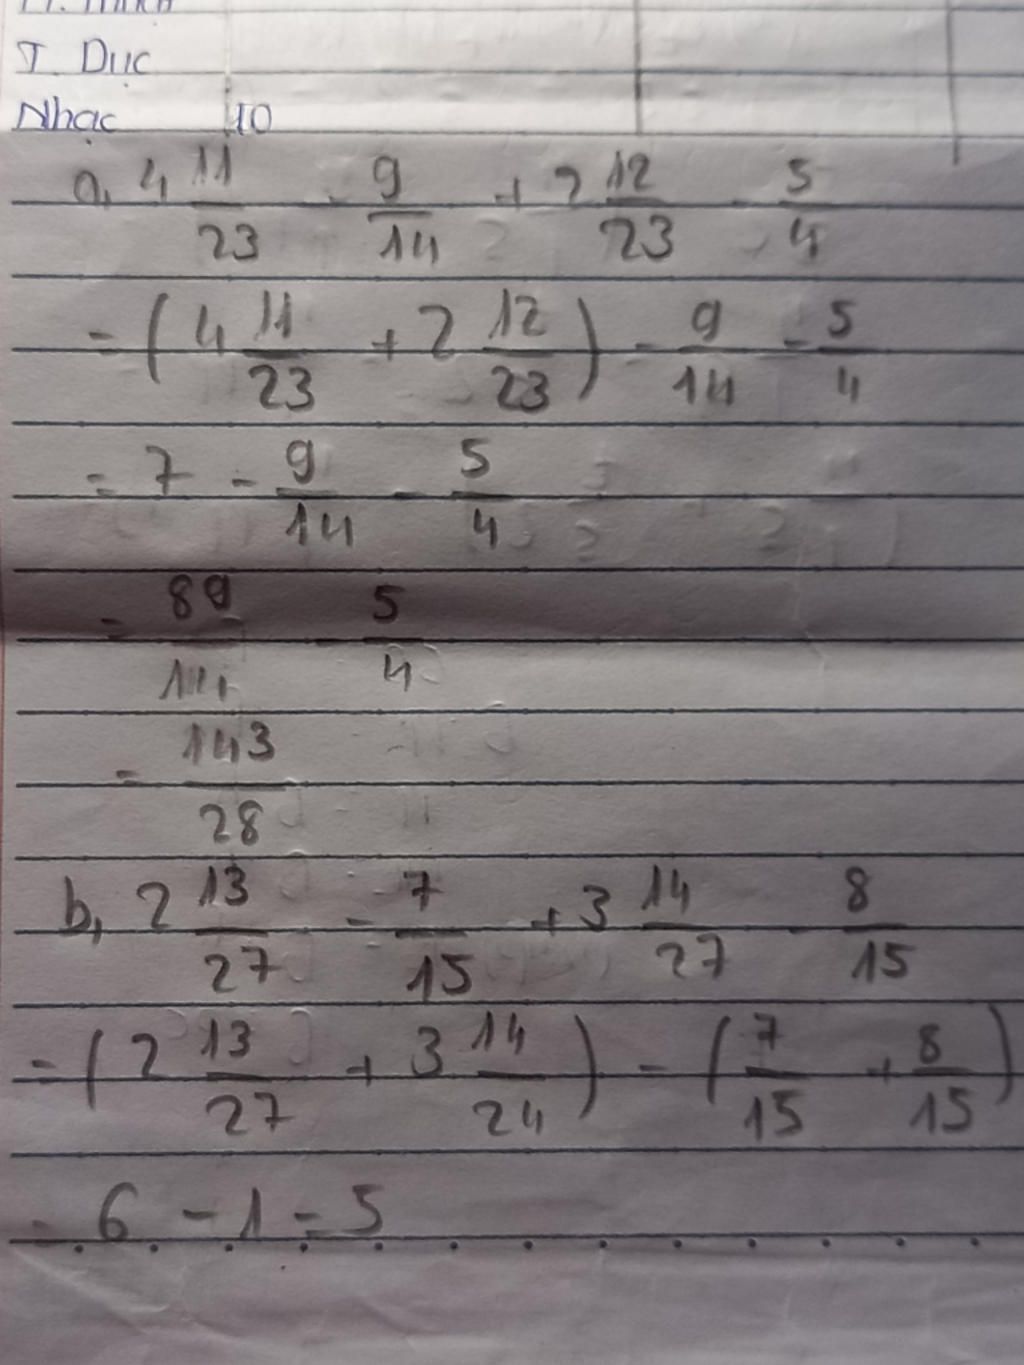 T. Dục
Nhạc 10
a, 4 11/23 - 9/14 + 2 12/23 - 5/4
= (4 11/23 + 2 12/23) - 9/14 - 5/4
= 7 - 9/14 - 5/4
= 89/14 - 5/4
= 143/28
b, 2 13/27 - 7/15 + 3 14/27 - 8/15
= (2 13/27 + 3 14/24) - (7/15 + 8/15)
= 6 - 1 = 5